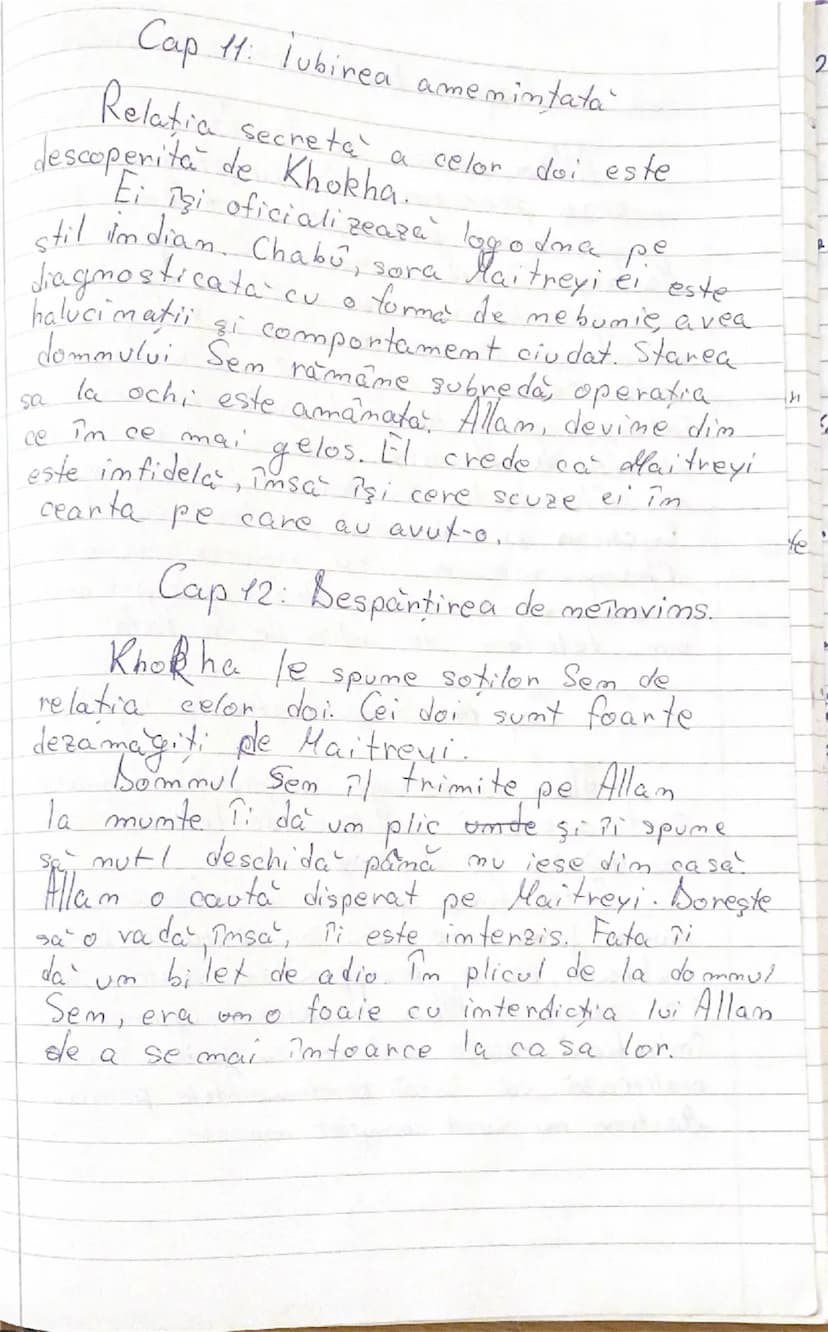 Cap 11: Iubirea amenințată
Relația secretă a celor doi este
descoperită de Khokha.
Ei își oficializează logodna pe
stil indian. Chabû, sora Maitreyiei este
diagnosticată cu o formă de nebunie, avea
halucinații și comportament ciudat. Starea
domnului Sen rămâne șubredă, operația
sa la ochi este amânată. Allan, devine din
ce în ce mai gelos. El crede că Maitreyi
este infidelă, însă își cere scuze ei în
cearta pe care au avut-o.
Cap 12: Despărțirea de neînvins.
Khokha le spune soților Sen de
relația celor doi. Cei doi sunt foarte
dezamăgiți de Maitreyi.
Domnul Sen îl trimite pe Allan
la munte. Îi dă un plic unde și îi spune
să nu-l deschidă până nu iese din casă.
Allan o caută disperat pe Maitreyi. Dorește
să o vadă, însă, îi este interzis. Fata îi
dă un bilet de adio. În plicul de la domnul
Sen, era un o foaie cu interdicția lui Allan
de a se mai întoarce la casa lor.
2
te